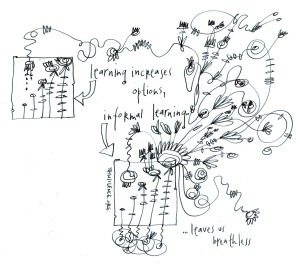 learning increases
options,
informal learning
...leaves us
breathless